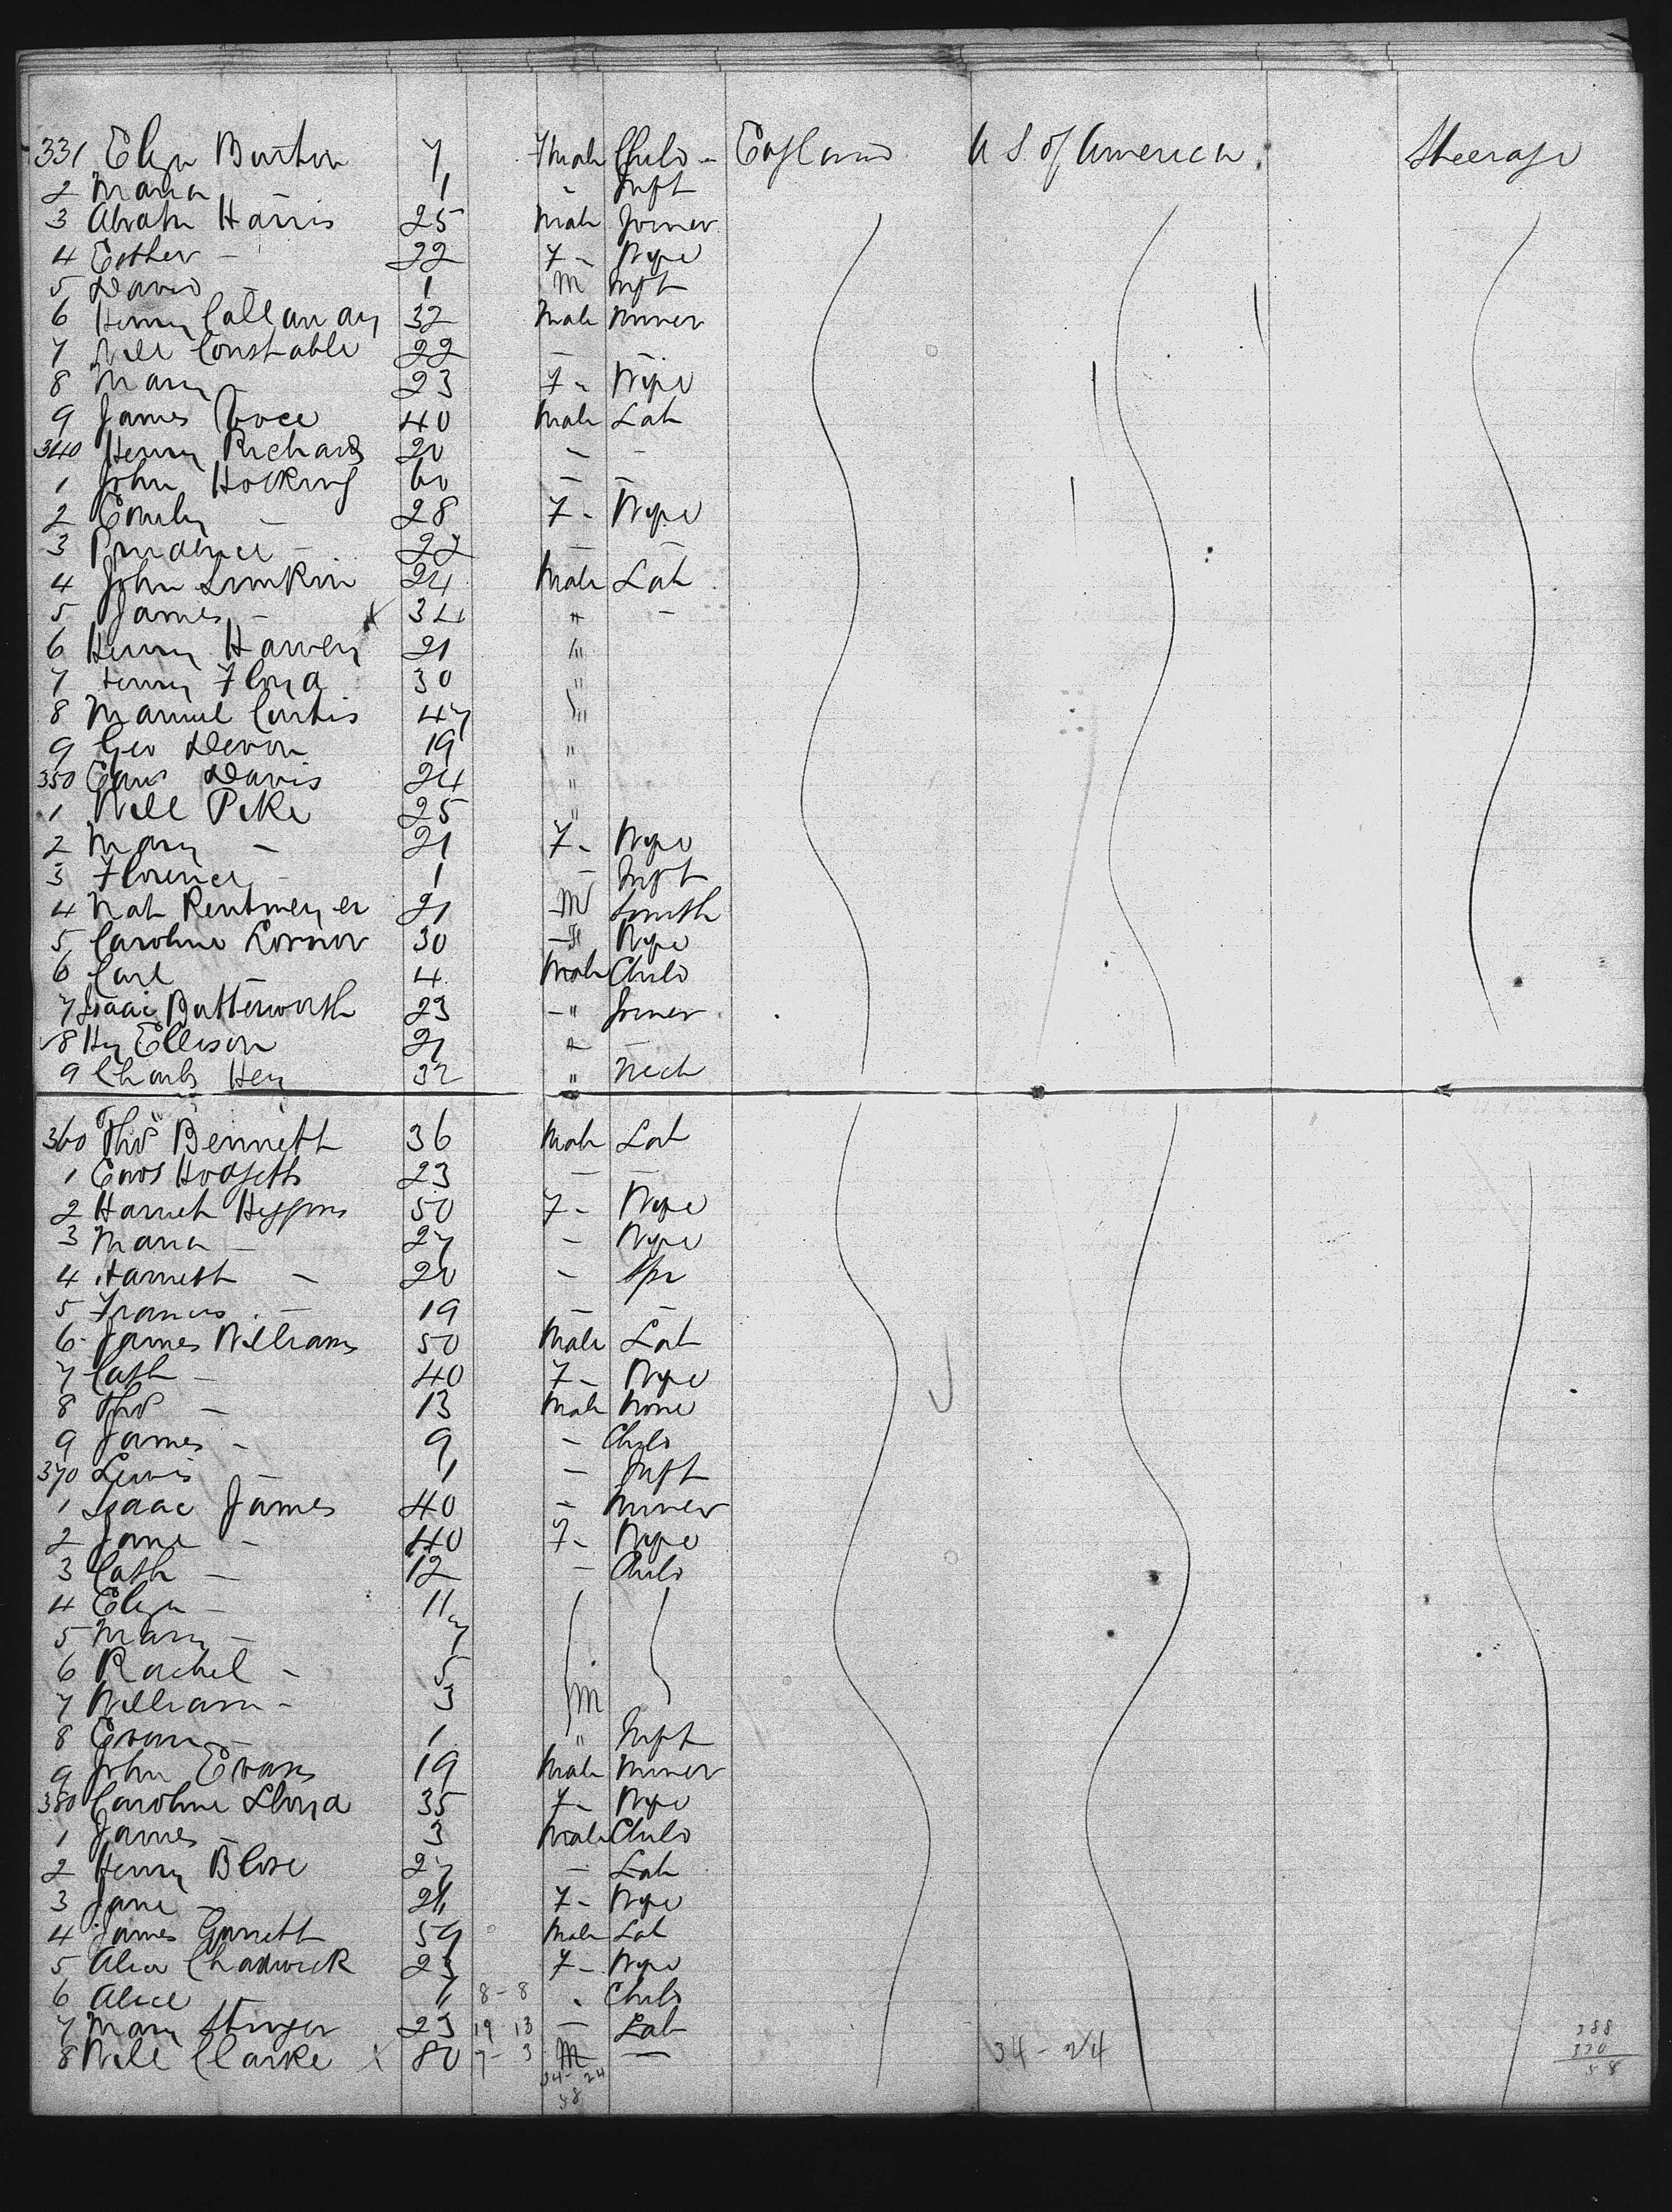 331 Eliza Burton 7 Fmale Child - England U S of America Steerage
2 Maria 1 " Inft
3 Abrahm Harris 25 Male Joiner
4 Esther - 22 F - Wife
5 David - 1 M Inft
6 Henry Callaway 32 Male Miner
7 Will Constable 22 - -
8 Mary - 23 F - Wife
9 James 40 Male Lab
340 Henry Richards 20 - -
1 John Hocking 60 - -
2 Emily - 28 F - Wife
3 Prudence - 22 - -
4 John Limkin 24 Male Lab
5 James - X 34 " -
6 Henry Harvey 21 "
7 Henry Floyd 30 "
8 Curtis 47 "
9 Geo Devon 19 "
350 Davis 24 "
1 Will Pike 25 "
2 Mary - 21 F - Wife
3 Florence - 1 - Inft
4 Nat Rentmeyer 21 M Smith
5 Caroline 30 F Wife
6 Carl - 4 Male Child
7 Isaac Butterworth 23 - " Joiner
8 Hy Ellison 21 " -
9 Charls Hey 32 " Mech
360 Thos Bennett 36 Male Lab
1 Enos Hodgetts 23 - -
2 Harriet Higgins 50 F - Wife
3 Maria - 27 - Wife
4 Harriett - 20 - Spr
5 Francis - 19 - -
6 James Williams 50 Male Lab
7 Cath - 40 F - Wife
8 Thos - 13 Male None
9 James - 9 - Child
370 Lewis - 1 - Inft
1 Isaac James 40 - Miner
2 Jane - 40 F - Wife
3 Cath - 12 - Child
4 Eliza - 11
5 Mary - 7
6 Rachel - 5
7 William - 3 M
8 Evan - 1 " Inft
9 John Evans 19 Male Miner
380 Caroline Lloyd 35 F - Wife
1 James - 3 Male Child
2 Henry Blose 27 - Lab
3 Jane - 26 F - Wife
4 James Garrett 59 Male Lab
5 Alice Chadwick 23 F - Wife
6 Alice - 1 8 - 8 " Child
7 Mary Stringer 23 19 - 13 - Lab
8 Will Clarke X 80 7 - 3 M - 34 - 24
34 - 24
58
388
330
58